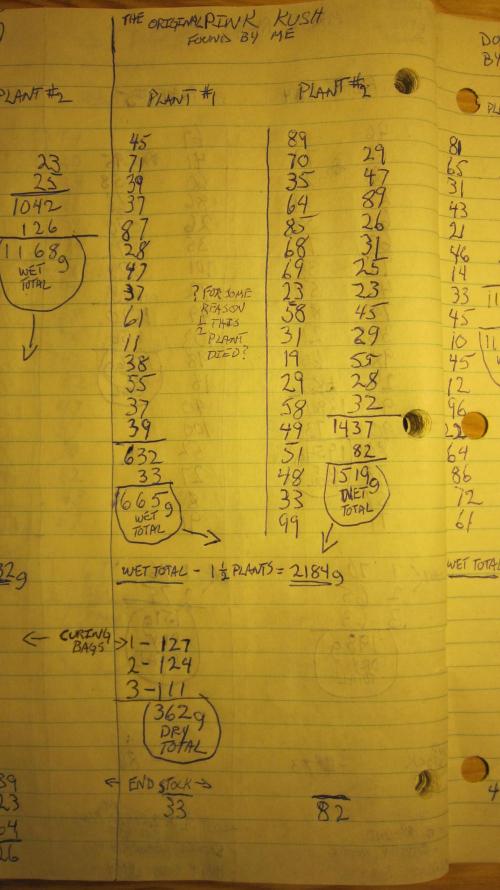 THE ORIGINAL PINK KUSH
FOUND BY ME
PLANT #2
23
25
1042
126
1168g
WET
TOTAL
PLANT #1
45
71
39
37
87
28
47
37
61
11
38
55
37
39
632
33
665g
WET
TOTAL
? FOR SOME
REASON
1/2 THIS
PLANT
DIED?
PLANT #2
89
70
35
64
85
68
69
23
58
31
19
29
58
49
51
48
33
99
29
47
89
26
31
25
23
45
29
55
28
32
1437
82
1519g
WET
TOTAL
WET TOTAL - 1 1/2 PLANTS = 2184g
CURING
BAGS
1 - 127
2 - 124
3 - 111
362g
DRY
TOTAL
END STOCK
33
82
32g
39
23
04
26
DO
BY
PL
81
65
31
43
21
46
14
33
45
10
45
12
96
22
64
86
72
61
WET TOTAL
4